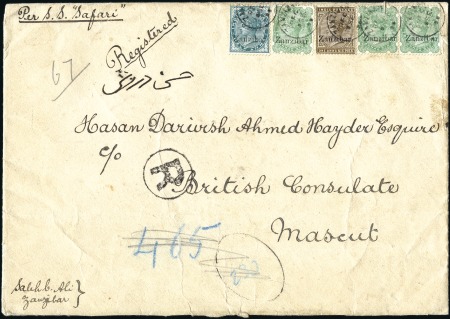 Per S.S. "Safari"
Registered
67
Zanzibar
Zanzibar
Zanzibar
Zanzibar
Zanzibar
Hasan Darwish Ahmed Hayder Esquire
c/o
R
British Consulate
Mascut
465
Saleh b. Ali
Zanzibar